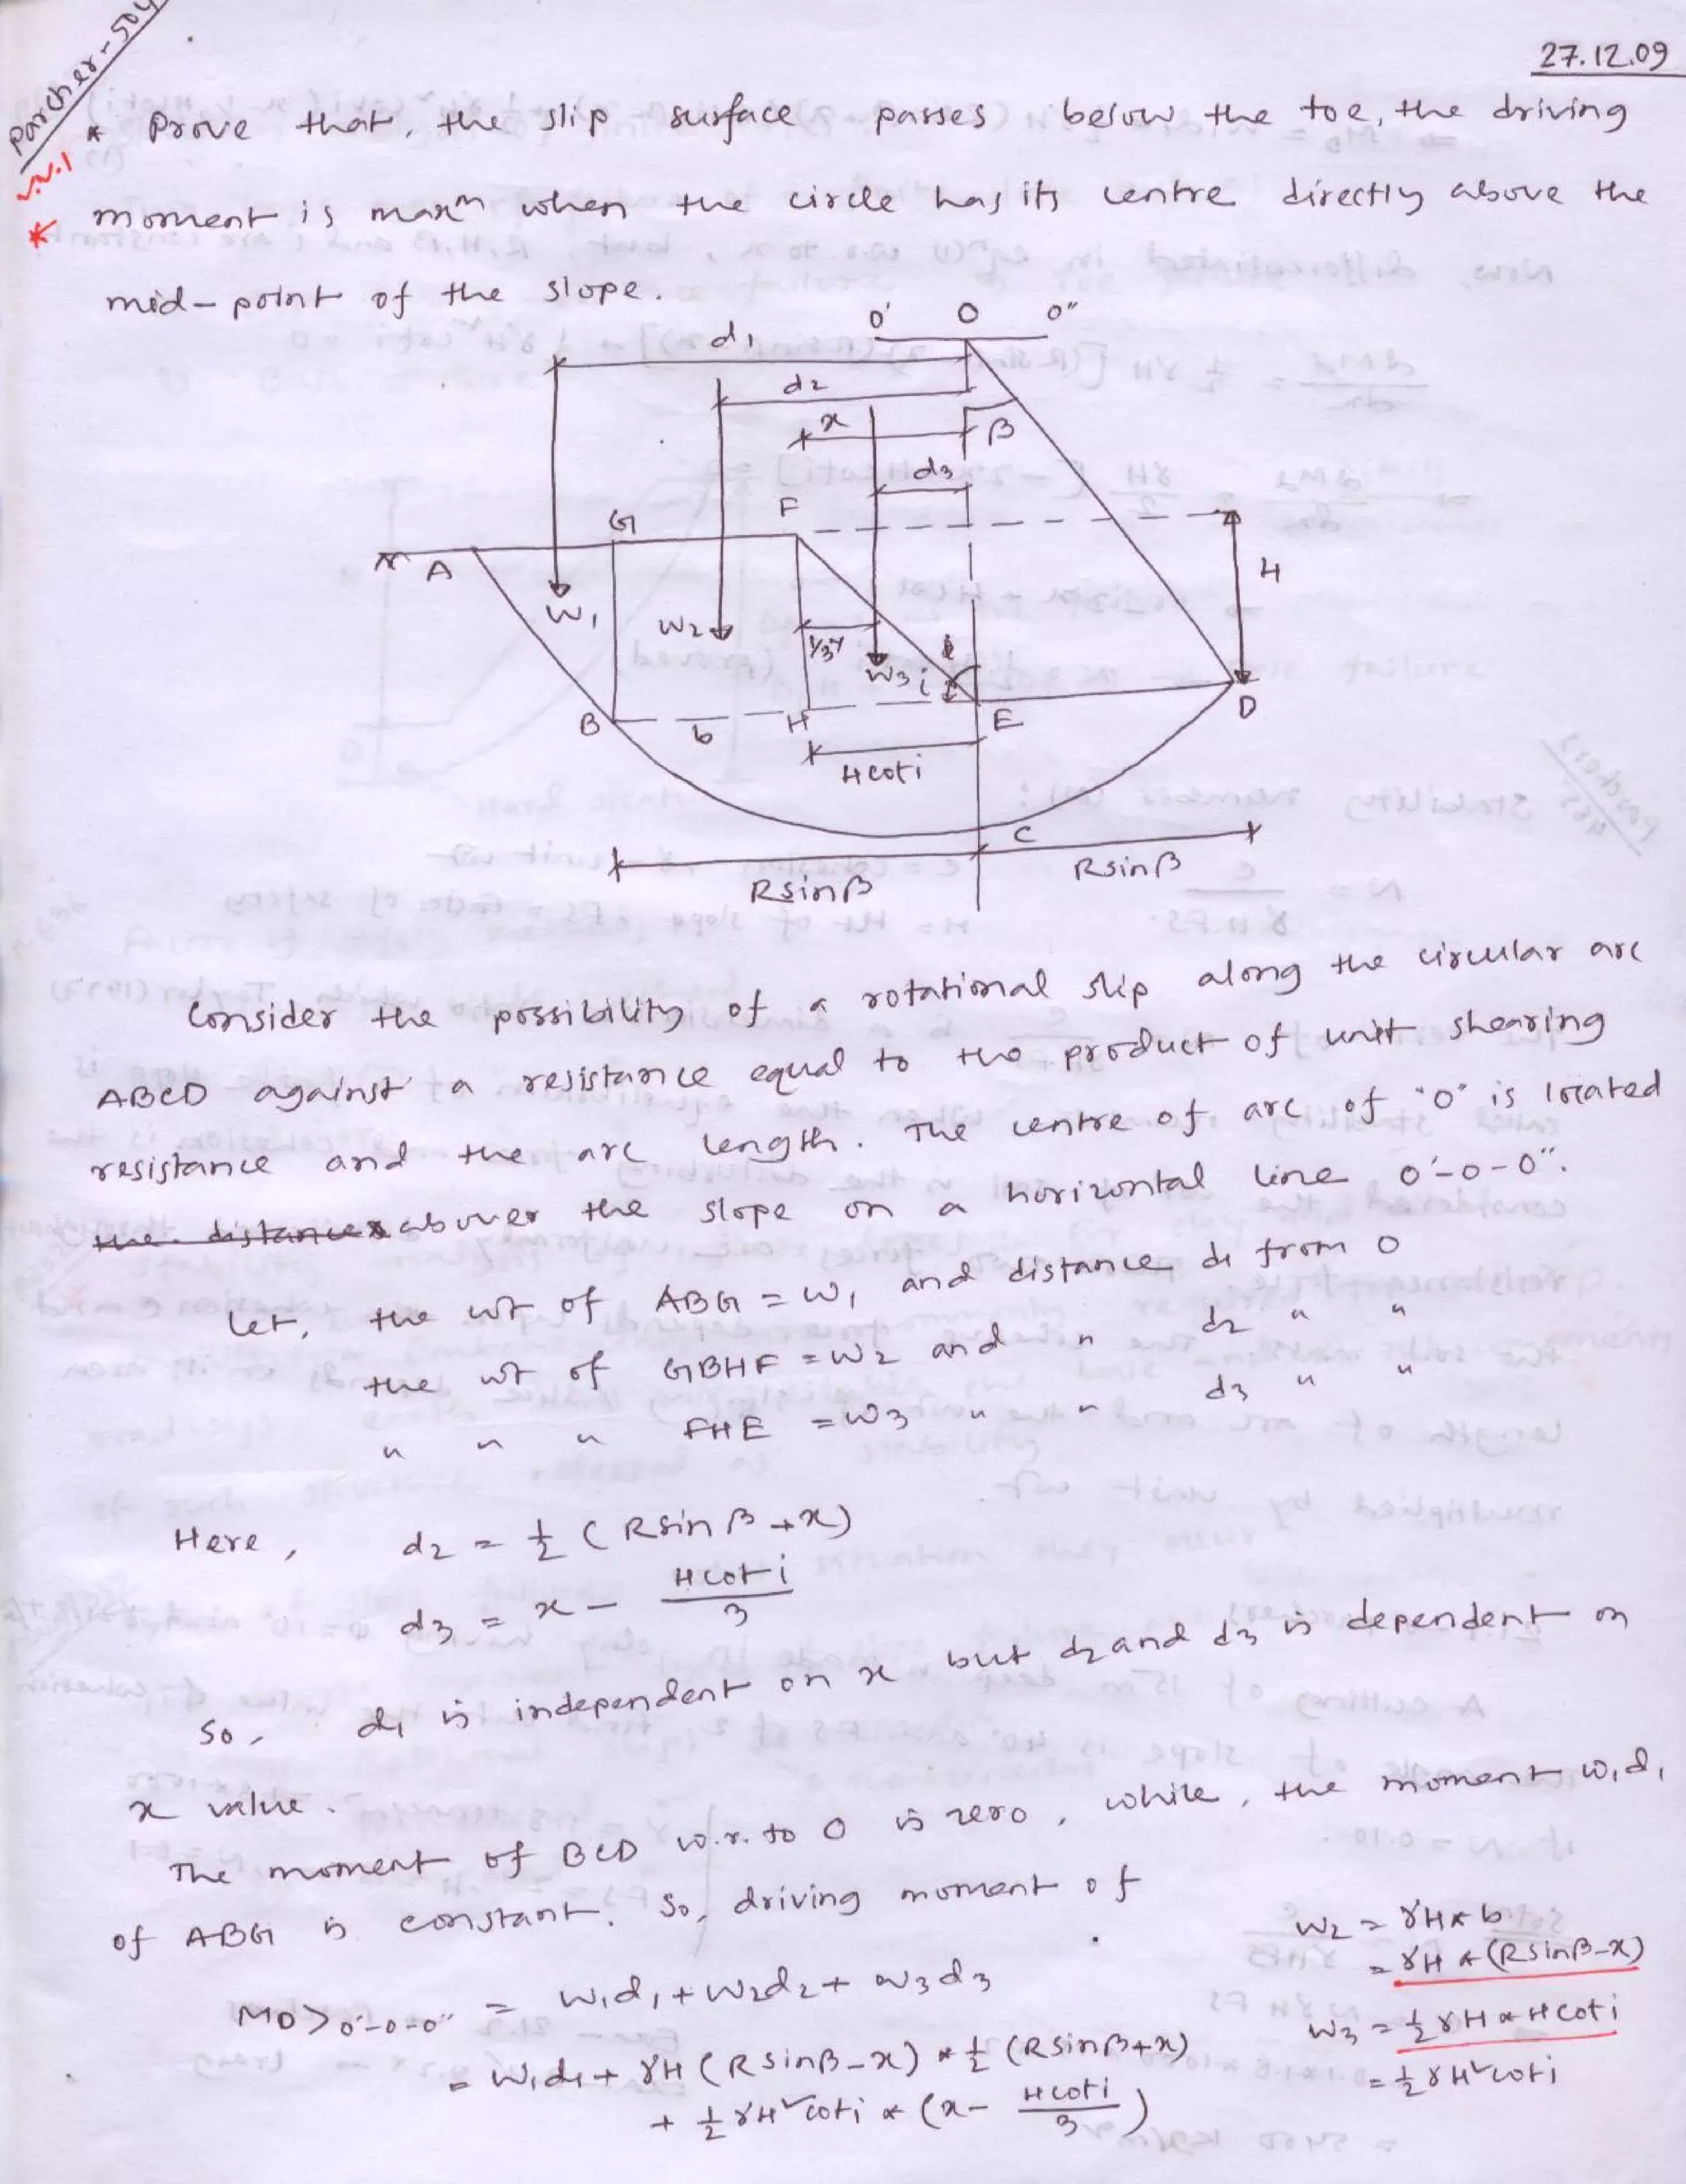 Parcher-504
27.12.09
V.V.I
* Prove that, the slip surface passes below the toe, the driving
* moment is maxᵐ when the circle has its centre directly above the
mid-point of the slope.
O' O O"
d₁
d₂
x
β
d₃
G F
A
H
W₁ W₂ W₃ i
B b H E D
Hcoti
C
Rsinβ Rsinβ
Consider the possibility of a rotational slip along the circular arc
ABCD against a resistance equal to the product of unit shearing
resistance and the arc length. The centre of arc of "O" is located
above the slope on a horizontal line O'-O-O".
Let, the wt of ABG = W₁ and distance d₁ from O
the wt of GBHF = W₂ and " d₂ " "
" " " FHE = W₃ " " d₃ " "
Here, d₂ = ½ (Rsinβ + x)
d₃ = x - Hcoti/3
So, d₁ is independent on x but d₂ and d₃ is dependent on
x value.
The moment of BCD w.r.to O is zero, while, the moment W₁d₁
of ABG is constant. So, driving moment of
MD>O'-O-O" = W₁d₁ + W₂d₂ + W₃d₃
= W₁d₁ + γH (Rsinβ-x) * ½ (Rsinβ+x)
+ ½ γH² coti * (x - Hcoti/3)
W₂ = γH*b
= γH * (Rsinβ-x)
W₃ = ½ γH * Hcoti
= ½ γH² coti